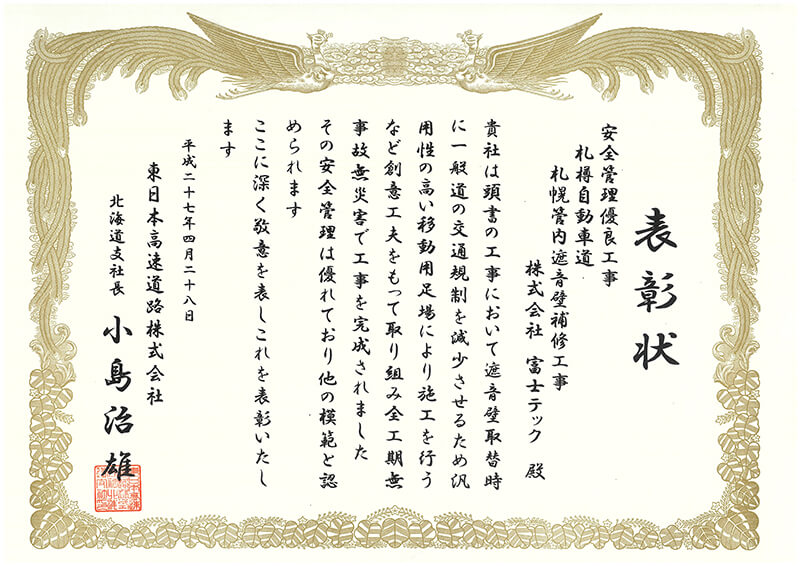 表彰状
安全管理優良工事
札樽自動車道
札幌管内遮音壁補修工事
株式会社 富士テック 殿
貴社は頭書の工事において遮音壁取替時
に一般道の交通規制を減少させるため汎
用性の高い移動用足場により施工を行う
など創意工夫をもって取り組み全工期無
事故無災害で工事を完成されました
その安全管理は優れており他の模範と認
められます
ここに深く敬意を表しこれを表彰いたし
ます
平成二十七年四月二十八日
東日本高速道路株式会社
北海道支社長 小島治雄